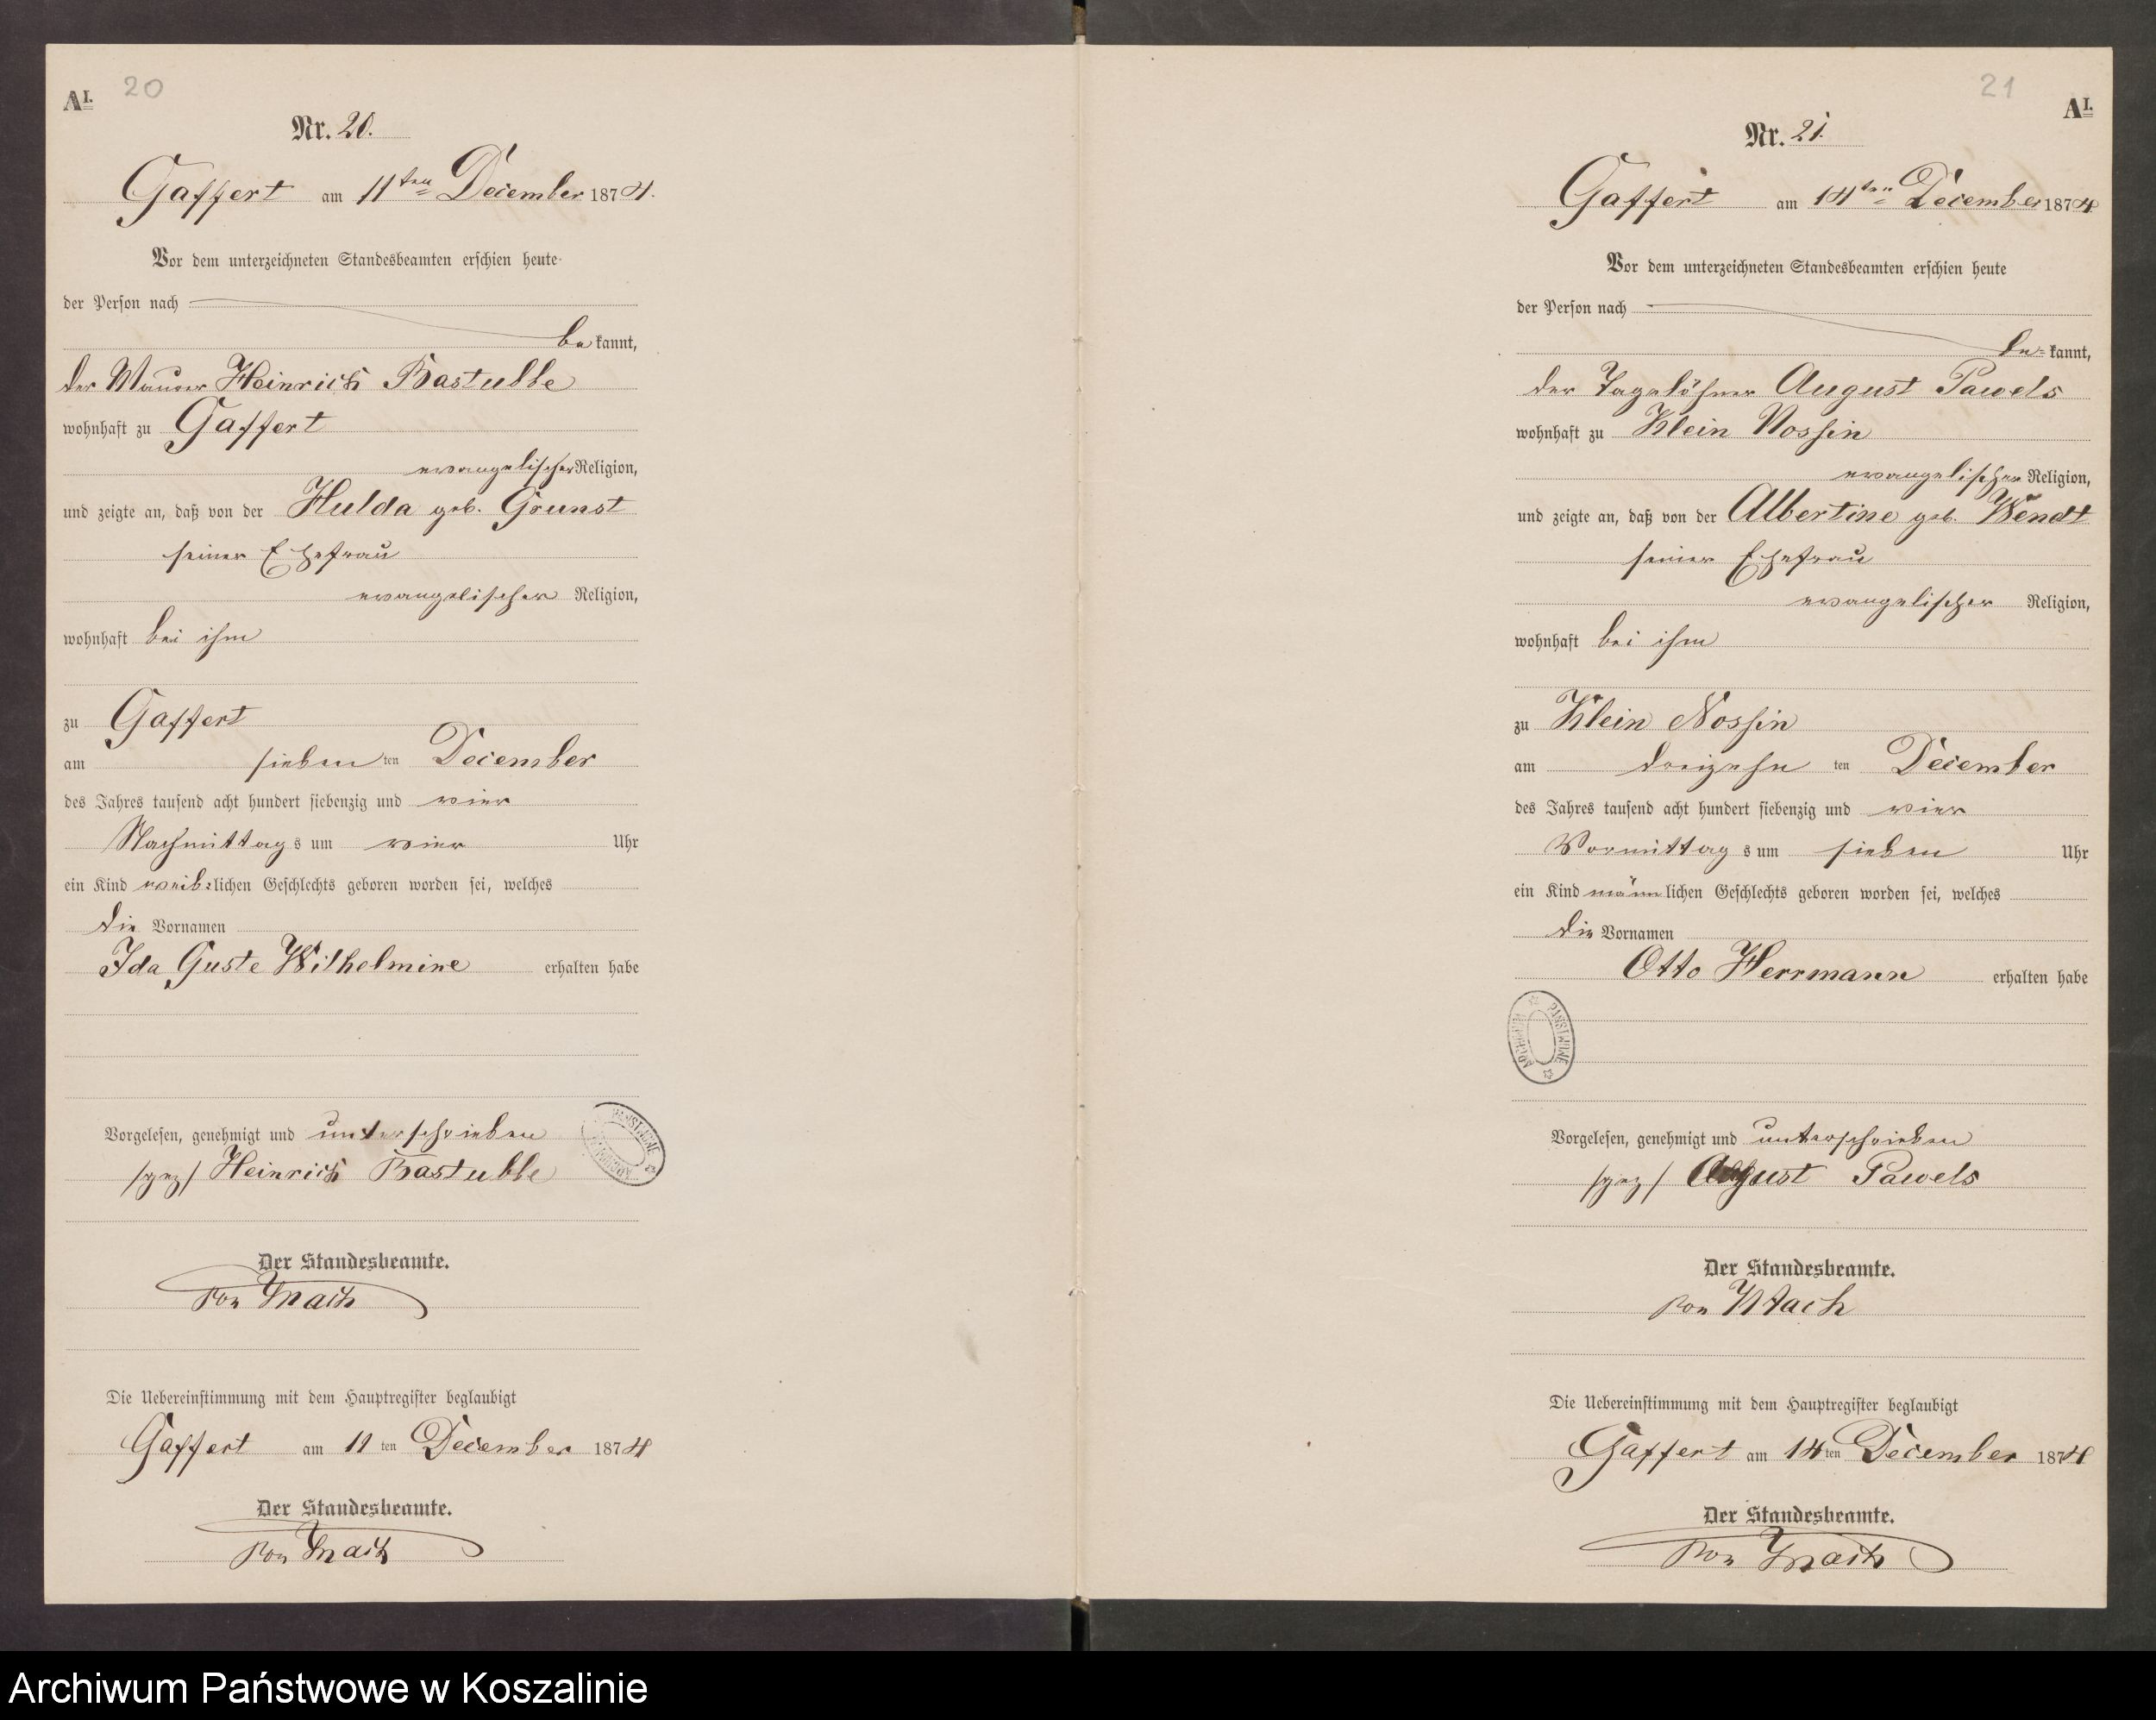 AI.
20
Nr. 20.
Gaffert am 11ten December 1874.
Vor dem unterzeichneten Standesbeamten erschien heute
der Person nach
be kannt,
der Maurer Heinrich Bastubbe
wohnhaft zu Gaffert
evangelischer Religion,
und zeigte an, daß von der Hulda geb. Grunst
seiner Ehefrau
evangelischer Religion,
wohnhaft bei ihm
zu Gaffert
am sieben ten December
des Jahres tausend acht hundert siebenzig und vier
Nachmittag s um vier Uhr
ein Kind weib=lichen Geschlechts geboren worden sei, welches
die Vornamen
Ida Guste Wilhelmine erhalten habe
Vorgelesen, genehmigt und unterschrieben
/gez/ Heinrich Bastubbe
ARCHIWUM PAŃSTWOWE
Der Standesbeamte.
von Mach
Die Uebereinstimmung mit dem Hauptregister beglaubigt
Gaffert am 11 ten December 1874
Der Standesbeamte.
von Mach
21
AI.
Nr. 21.
Gaffert am 14ten December 1874
Vor dem unterzeichneten Standesbeamten erschien heute
der Person nach
be= kannt,
der Tagelöhner August Pawels
wohnhaft zu Klein Nossin
evangelischer Religion,
und zeigte an, daß von der Albertine geb. Wendt
seiner Ehefrau
evangelischer Religion,
wohnhaft bei ihm
zu Klein Nossin
am dreizehn ten December
des Jahres tausend acht hundert siebenzig und vier
Vormittag s um sieben Uhr
ein Kind männ lichen Geschlechts geboren worden sei, welches
die Vornamen
Otto Herrmann erhalten habe
ARCHIWUM PAŃSTWOWE
Vorgelesen, genehmigt und unterschrieben
/gez/ August Pawels
Der Standesbeamte.
von Mach
Die Uebereinstimmung mit dem Hauptregister beglaubigt
Gaffert am 14 ten December 1874
Der Standesbeamte.
von Mach
Archiwum Państwowe w Koszalinie